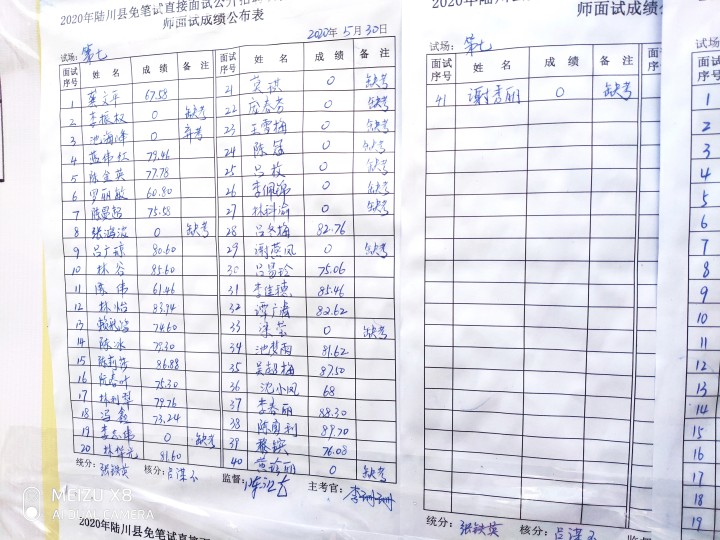 2020年陆川县免笔试直接面试公开招
师面试成绩公布表
2020年5月30日
试场：第七
面试序号 姓 名 成 绩 备 注 面试序号 姓 名 成 绩 备 注
1 67.58 21 莫祺 0 缺考
2 李振权 0 缺考 22 庞春杏 0 缺考
3 池海峰 0 弃考 23 王雪梅 0 缺考
4 蓝伟松 79.46 24 陈 0 缺考
5 陈金英 77.78 25 吕枚 0 缺考
6 罗丽敏 60.80 26 李佩 0 缺考
7 陈 75.58 27 林科渝 0 缺考
8 张海波 0 缺考 28 吕冬梅 82.76
9 吕广琼 80.60 29 谢燕凤 0 缺考
10 林谷 85.60 30 吕昌玲 75.06
11 伟 61.46 31 李佳穗 85.46
12 林怡 83.94 32 谭广 82.62
13 赖 74.60 33 梁莹 0 缺考
14 陈冰 79.30 34 池梦雨 81.62
15 陈莉莎 86.88 35 吴 梅 87.50
16 阮春叶 75.30 36 沈小凤 68
17 林利梨 79.76 37 李春丽 88.30
18 冯鑫 73.24 38 陈 利 89.70
19 李志伟 0 缺考 39 76.08
20 林 81.60 40 黄珍丽 0 缺考
统分：张铁英 核分： 监督： 主考官：李珊珊
2020年陆川县免笔试直接面
2020年陆川县免笔试直接面试公开招
师面试成绩公
试场：第七
面试序号 姓 名 成 绩 备 注 面试序号
41 谢秀丽 0 缺考
统分：张铁英 核分： 监
试场
面试序号
1
2
3
4
5
6
7
8
9
10
11
12
13
14
15
16
17
18
19
MEIZU X8
AI DUAL CAMERA